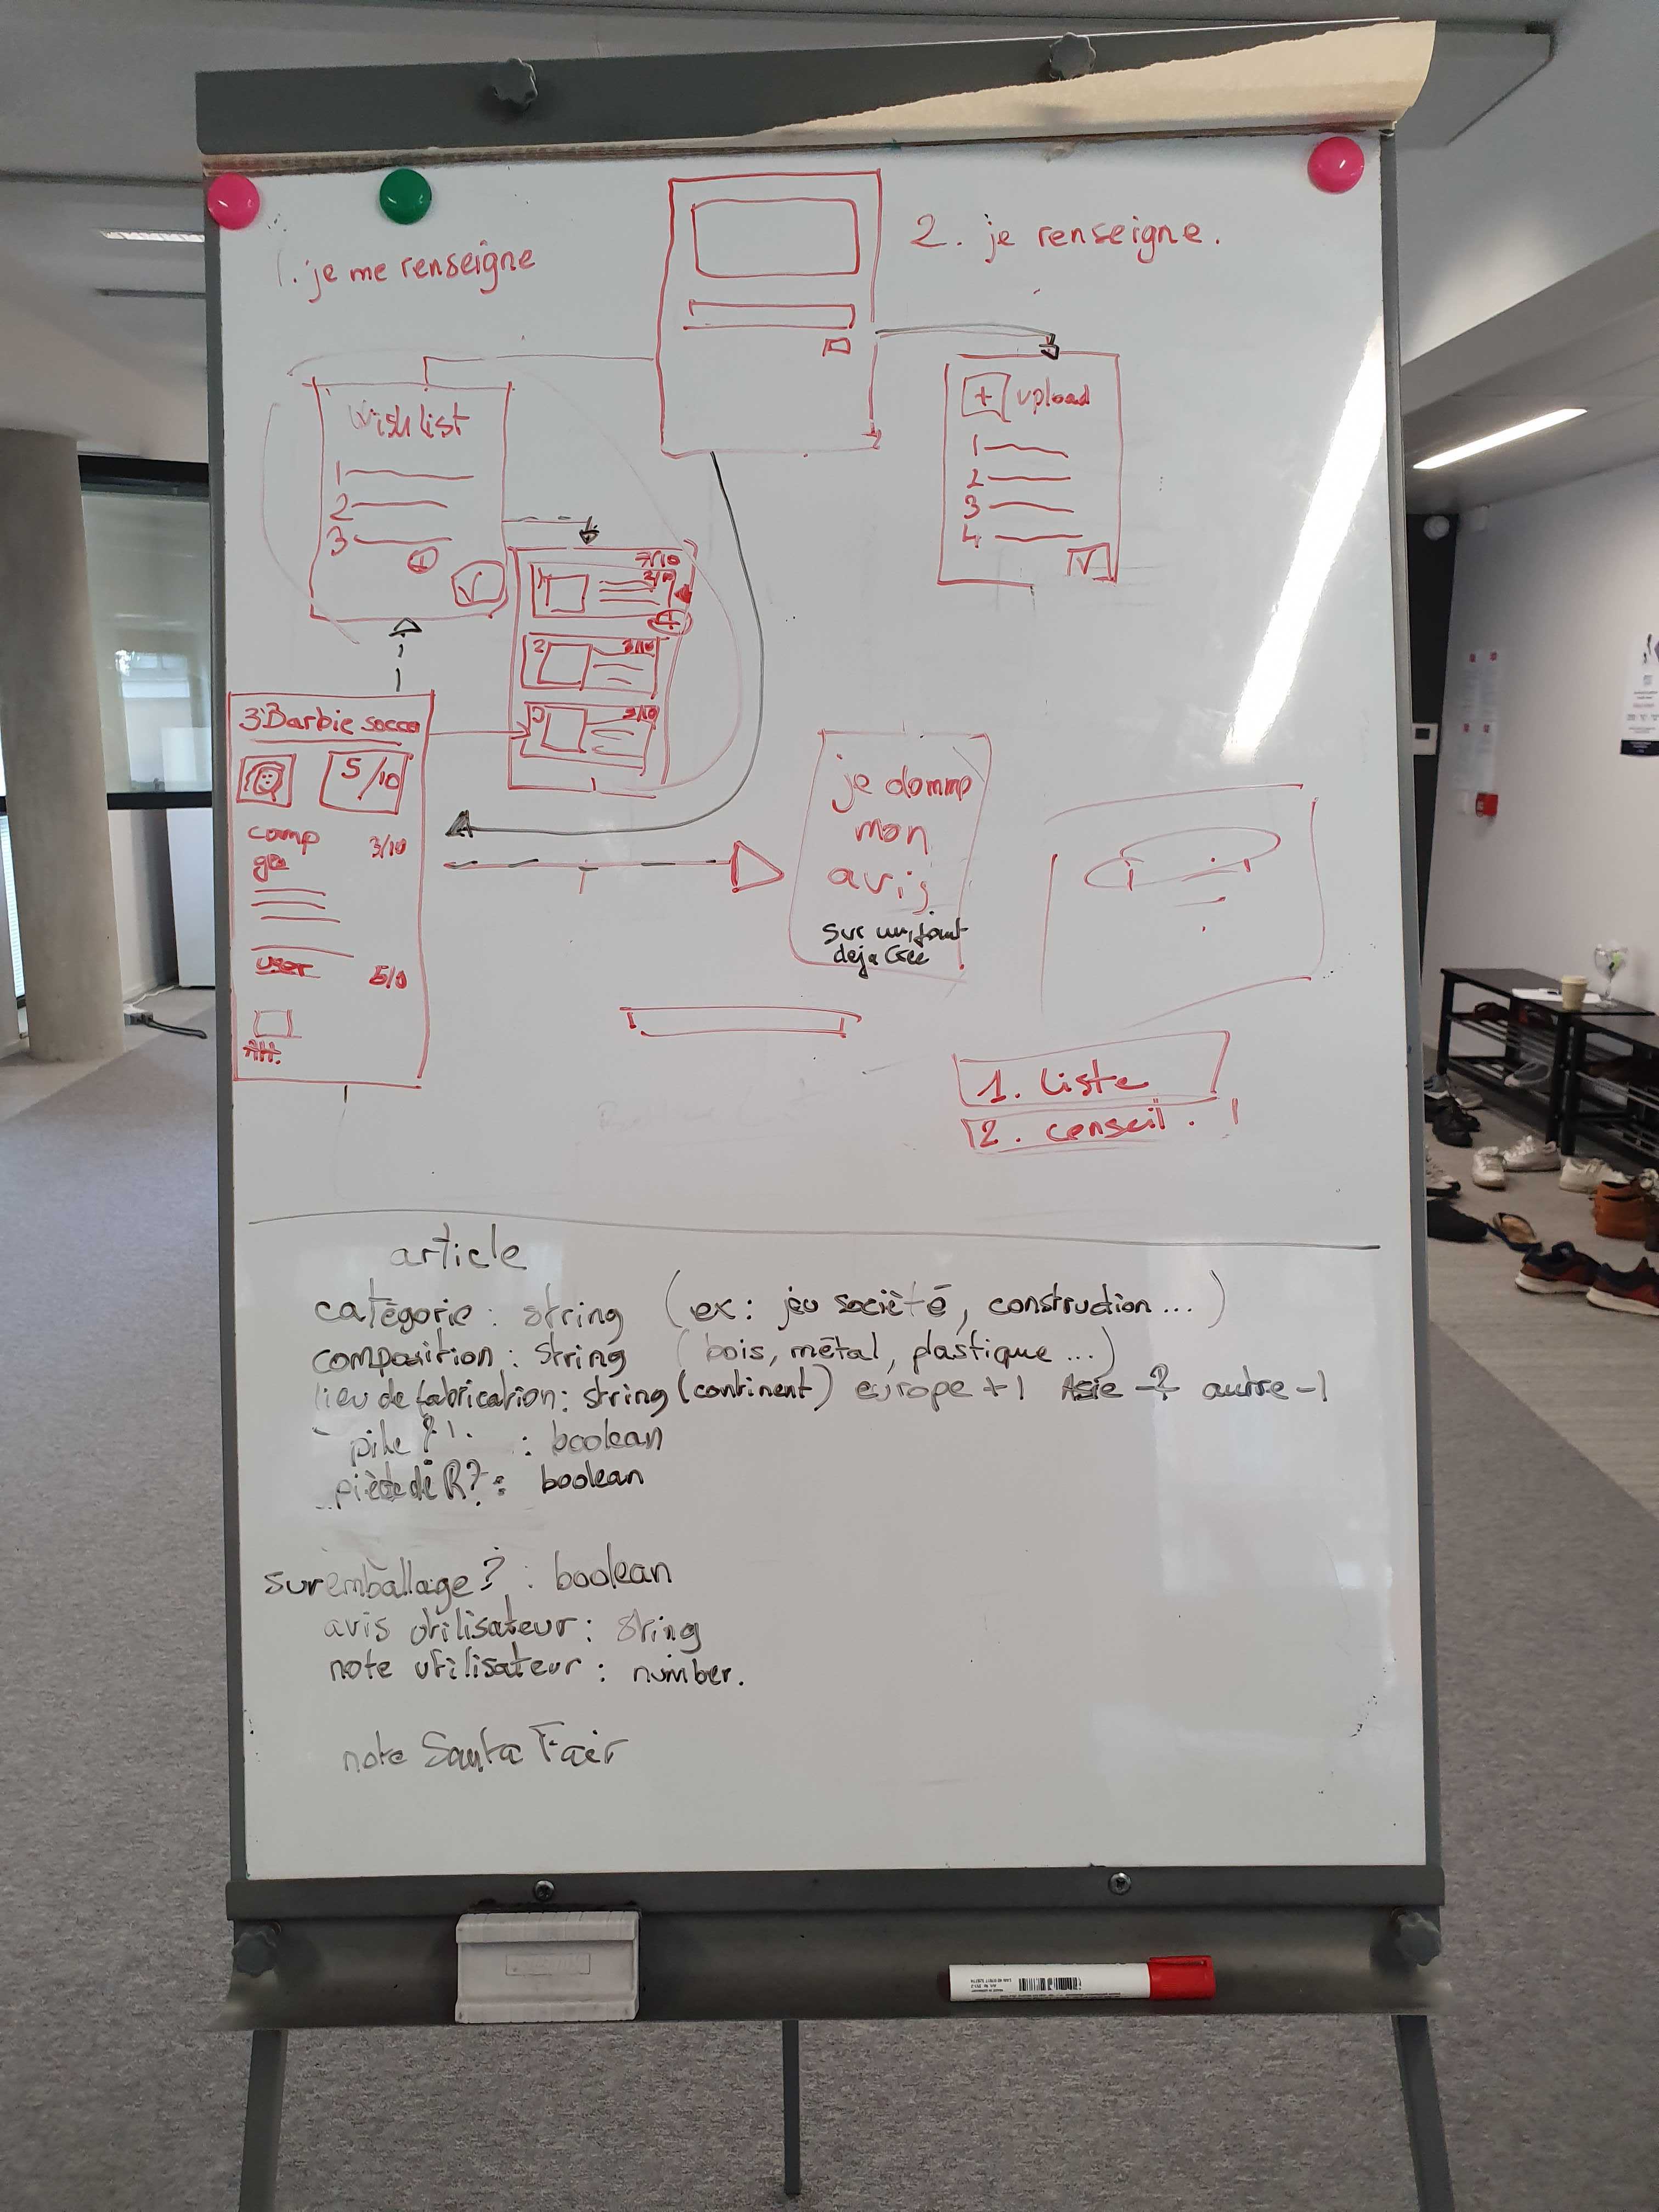 1. je me renseigne
2. je renseigne.
Wish list
1
2
3
+
+ upload
1
2
3
4
7/10
1
2
3/10
3
3 Barbie socco
5/10
comp
ge
3/10
user
je donne
mon
avis
sur un jouet
deja créé
1. Liste
2. conseil.
article
catégorie : string (ex : jeu société, construction...)
composition : string (bois, métal, plastique...)
lieu de fabrication : string (continent) europe +1 Asie -2 autre -1
pile ? : boolean
pièce de R? : boolean
sur emballage ? : boolean
avis utilisateur : string
note utilisateur : number.
note Santa Fair